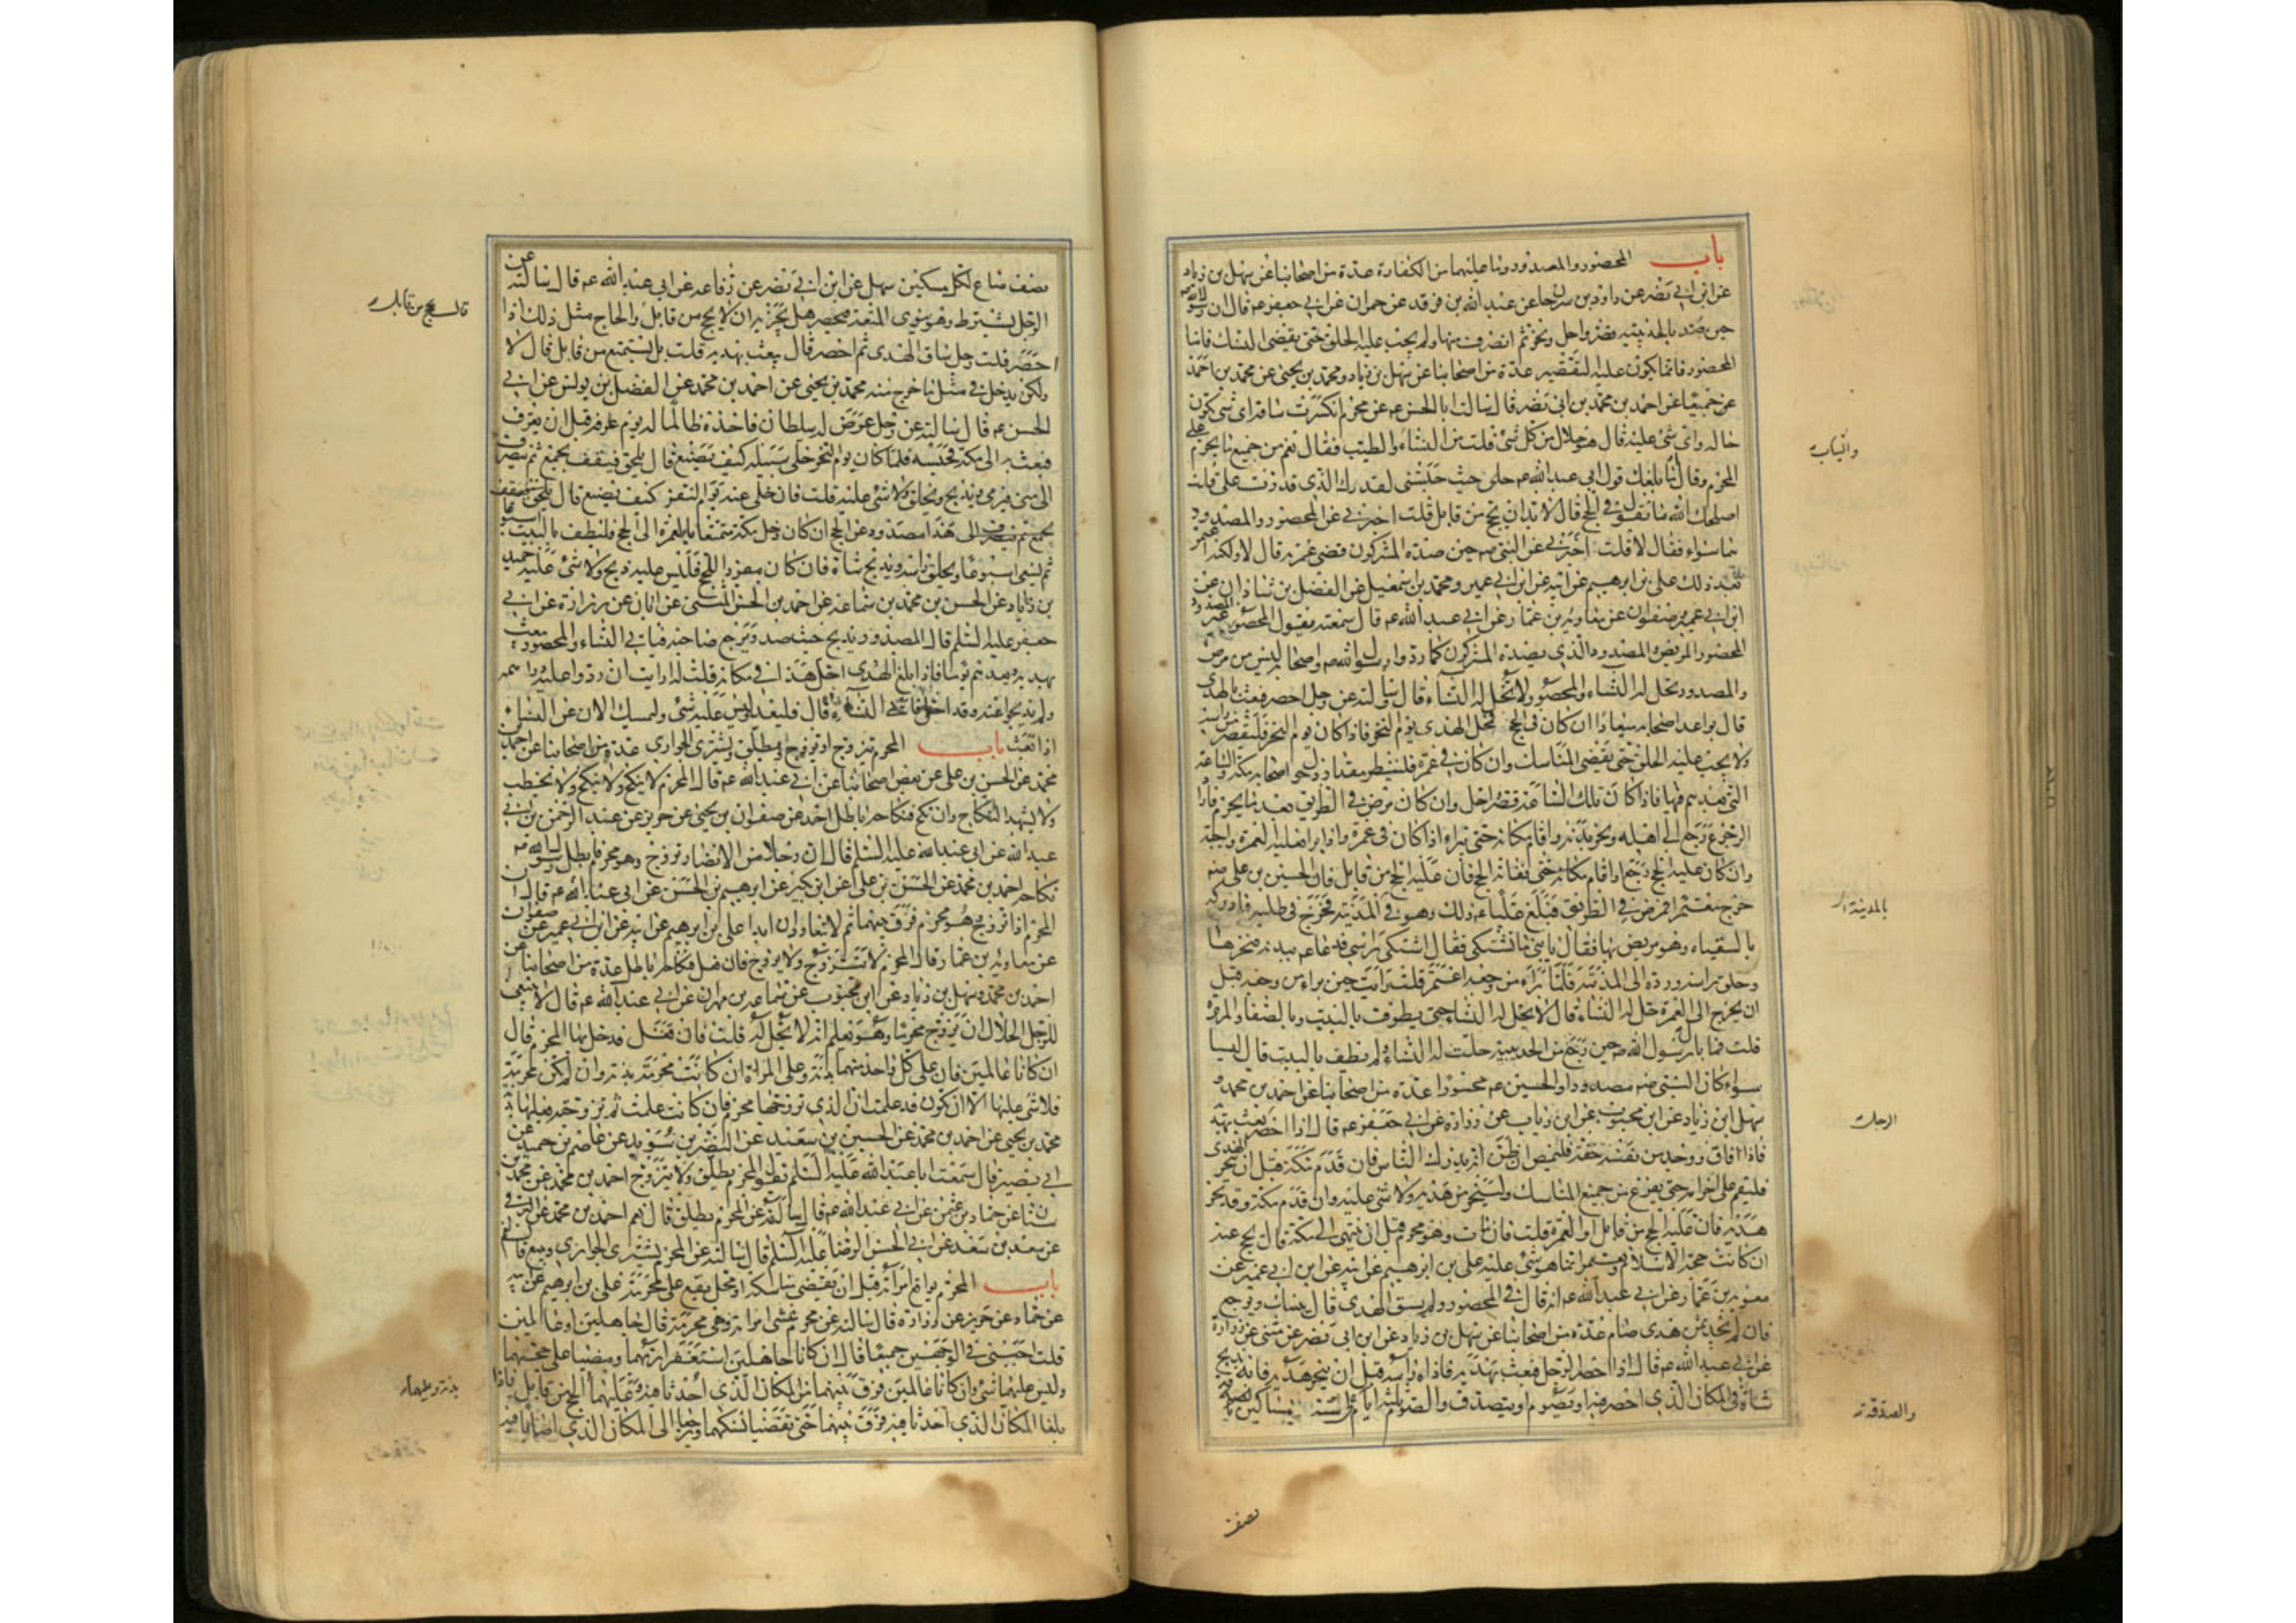 باب المحصور والمصدود وما عليهما من الكفارة عدة من اصحابنا عن سهل بن زياد
عن ابن ابي نصر عن داود بن سرحان عن عبد الله بن فرقد عن حمران عن ابي جعفر عم قال ان رسول الله ص
حين صد بالحديبية قصر واحل ونحر ثم انصرف منها ولم يجب عليه الحلق حتى يقضي النسك فاما
المحصور فانما يكون عليه التقصير عدة من اصحابنا عن سهل بن زياد ومحمد بن يحيى عن محمد بن احمد
عن جميعا عن احمد بن محمد بن ابي نصر قال سالت ابا الحسن عم عن محرم انكسرت ساقه اي شي يكون
حاله واي شئ عليه قال هو حلال من كل شئ قلت من النساء والطيب فقال نعم من جميع ما يحرم على
المحرم وقال اما بلغك قول ابي عبد الله عم حلني حيث حبستني لقدرك الذي قدرت علي قلت
اصلحك الله ما تقول في الحج قال لا بد ان يحج من قابل قلت اخبرني عن المحصور والمصدود
هما سواء فقال لا قلت اخبرني عن النبي ص حين صده المشركون قضى عمرته قال لا ولكنه اعتمر
بعد ذلك علي بن ابرهيم عن ابيه عن ابن ابي عمير ومحمد بن اسمعيل عن الفضل بن شاذان عن
ابن ابي عمير وصفوان عن معاوية بن عمار عن ابي عبد الله عم قال سمعته يقول المحصور غير المصدود
المحصور المريض المصدود الذي يصده المشركون كما ردوا رسول الله ص واصحابه ليس من مرض
والمصدود تحل له النساء والمحصور لا تحل له النساء قال وسالته عن رجل احصر فبعث بالهدي
قال يواعد اصحابه ميعادا ان كان في الحج فمحل الهدي يوم النحر فاذا كان يوم النحر فليقصر من راسه
ولا يجب عليه الحلق حتى يقضي المناسك وان كان في عمرة فلينظر مقدار دخول اصحابه مكة والساعة
التي يعدهم فيها فاذا كان تلك الساعة قصر واحل وان كان مرض في الطريق بعد ما يحرم فاراد
الرجوع رجع الى اهله ونحر بدنة واقام مكانه حتى يبرا اذا كان في عمرة واذا برا فعليه العمرة واجبة
وان كان عليه الحج رجع او اقام مكانه حتى تفاته الحج فان عليه الحج من قابل فان الحسين بن علي ص
خرج معتمرا فمرض في الطريق فبلغ عليا عم ذلك وهو في المدينة فخرج في طلبه فادركه
بالسقيا وهو مريض بها فقال يا بني ما تشتكي فقال اشتكي راسي فدعا عم ببدنة فنحرها
وحلق راسه ورده الى المدينة فلما برا من وجعه اعتمر قلت ارايت حين برا من وجعه قبل
ان يخرج الى العمرة حل له النساء قال لا تحل له النساء حتى يطوف بالبيت وبالصفا والمروة
قلت فما بال رسول الله ص حين رجع من الحديبية حلت له النساء ولم يطف بالبيت قال ليسا
سواء كان النبي ص مصدودا والحسين عم محصورا عدة من اصحابنا عن احمد بن محمد و
سهل ابن زياد عن ابن محبوب عن ابن رياب عن زرارة عن ابي جعفر عم قال اذا احصر بعث بهديه
فاذا افاق ووجد من نفسه خفة فليمض ان ظن انه يدرك الناس فان قدم مكة قبل ان ينحر الهدي
فليقم على احرامه حتى يفرغ من جميع المناسك ولينحر هديه ولا شئ عليه وان قدم مكة وقد نحر
هديه فان عليه الحج من قابل او العمرة قلت فان مات وهو محرم قبل ان ينتهي الى مكة قال يحج عنه
ان كانت حجة الاسلام ويعتمر انما هو شئ عليه علي بن ابرهيم عن ابيه عن ابن ابي عمير عن
معوية بن عمار عن ابي عبد الله عم انه قال في المحصور ولم يسق الهدي قال ينسك ويرجع
فان لم يجد ثمن هدي صام عدة من اصحابنا عن سهل بن زياد عن ابن ابي نصر عن مثنى عن زرارة
عن ابي عبد الله عم قال اذا احصر الرجل فبعث بهديه فاذاه راسه قبل ان ينحر هديه فانه يذبح
شاة في المكان الذي احصر فيه او يصوم او يتصدق والصوم ثلثة ايام على ستة مساكين
والثياب
بالمدينة
الرجل
والصدقة
نصف
نصف صاع لكل مسكين سهل عن ابن ابي نصر عن رفاعة عن ابي عبد الله عم قال سالته عن
الرجل يشترط وهو ينوي المتعة فيحصر هل يجزيه ان لا يحج من قابل والحاج مثل ذلك اذا
احصر قلت رجل ساق الهدي ثم احصر قال يبعث بهديه قلت هل يستمتع من قابل قال لا
ولكن يدخل في مثل ما خرج منه محمد بن يحيى عن احمد بن محمد عن الفضل بن يونس عن ابي
الحسن عم قال سالته عن رجل عرض له سلطان فاخذه ظالما له يوم عرفة قبل ان يعرف
فبعث به الى مكة فحبسه فلما كان يوم النحر خلى سبيله كيف يصنع قال يلحق فيقف بجمع ثم ينصرف
الى منى فيرمي ويذبح ويحلق ولا شئ عليه قلت فان خلى عنه يوم النفر كيف يصنع قال
هذا مصدود عن الحج ان كان دخل مكة متمتعا بالعمرة الى الحج فليطف بالبيت اسبوعا
ثم يسعى اسبوعا ويحلق راسه ويذبح شاة فان كان مفردا للحج فليس عليه ذبح ولا شئ عليه حميد
بن زياد عن الحسن بن محمد بن سماعة عن احمد بن الحسن الميثمي عن ابان عن زرارة عن ابي
جعفر عليه السلم قال المصدود يذبح حيث صد ويرجع صاحبه فياتي النساء والمحصور يبعث
بهديه ويعدهم يوما فاذا بلغ الهدي احل هذا في مكانه قلت له ارايت ان ردوا عليه دراهمه
ولم يذبحوا عنه وقد احل فاتى النساء قال فليعد وليس عليه شئ وليمسك الان عن النساء
اذا بعث باب المحرم يتزوج او يزوج او يطلق ويشتري الجواري عدة من اصحابنا عن احمد بن
محمد عن الحسن بن علي عن بعض اصحابنا عن ابي عبد الله عم قال المحرم لا ينكح ولا ينكح ولا يخطب
ولا يشهد النكاح وان نكح فنكاحه باطل احمد عن صفوان بن يحيى عن حريز عن عبد الرحمن بن ابي
عبد الله عن ابي عبد الله عليه السلم قال ان رجلا من الانصار تزوج وهو محرم فابطل رسول الله ص
نكاحه احمد بن محمد عن الحسن بن علي عن ابن بكير عن ابرهيم بن الحسن عن ابي عبد الله عم قال ان
المحرم اذا تزوج وهو محرم فرق بينهما ثم لا يتعاودان ابدا علي بن ابرهيم عن ابيه عن ابن ابي عمير عن صفوان
عن معاوية بن عمار قال المحرم لا يتزوج ولا يزوج فان فعل فنكاحه باطل عدة من اصحابنا عن
احمد بن محمد وسهل بن زياد عن ابن محبوب عن سماعة بن مهران عن ابي عبد الله عم قال لا ينبغي
للرجل الحلال ان يزوج محرما وهو يعلم انه لا يحل له قلت فان فعل فدخل بها المحرم قال
ان كانا عالمين فان على كل واحد منهما بدنة وعلى المراة ان كانت محرمة بدنة وان لم تكن محرمة
فلا شئ عليها الا ان تكون قد علمت ان الذي تزوجها محرم فان كانت علمت ثم تزوجته فعليها بدنة
محمد بن يحيى عن احمد بن محمد عن الحسين بن سعيد عن النضر بن سويد عن عاصم بن حميد عن
ابي بصير قال سمعت ابا عبد الله عليه السلم يقول المحرم يطلق ولا يتزوج احمد بن محمد عن محمد بن
سنان عن حماد بن عثمن عن ابي عبد الله عم قال سالته عن المحرم يطلق قال نعم احمد بن محمد عن البرقي
عن سعد بن سعد عن ابي الحسن الرضا عليه السلم قال سالته عن المحرم يشتري الجواري ويبيع قال نعم
باب المحرم يواقع امراته قبل ان يقضي مناسكه او محل يقع على محرمة علي بن ابرهيم عن ابيه
عن حماد عن حريز عن زرارة قال سالته عن محرم غشي امراته وهي محرمة قال جاهلين او عالمين
قلت اجبني في الوجهين جميعا قال ان كانا جاهلين استغفرا ربهما ومضيا على حجهما
وليس عليهما شئ وان كانا عالمين فرق بينهما من المكان الذي احدثا فيه وعليهما الحج من قابل فاذا
بلغا المكان الذي احدثا فيه فرق بينهما حتى يقضيا نسكهما ويرجعا الى المكان الذي اصابا فيه
قال يحج من قابل
بدنة وعليهما